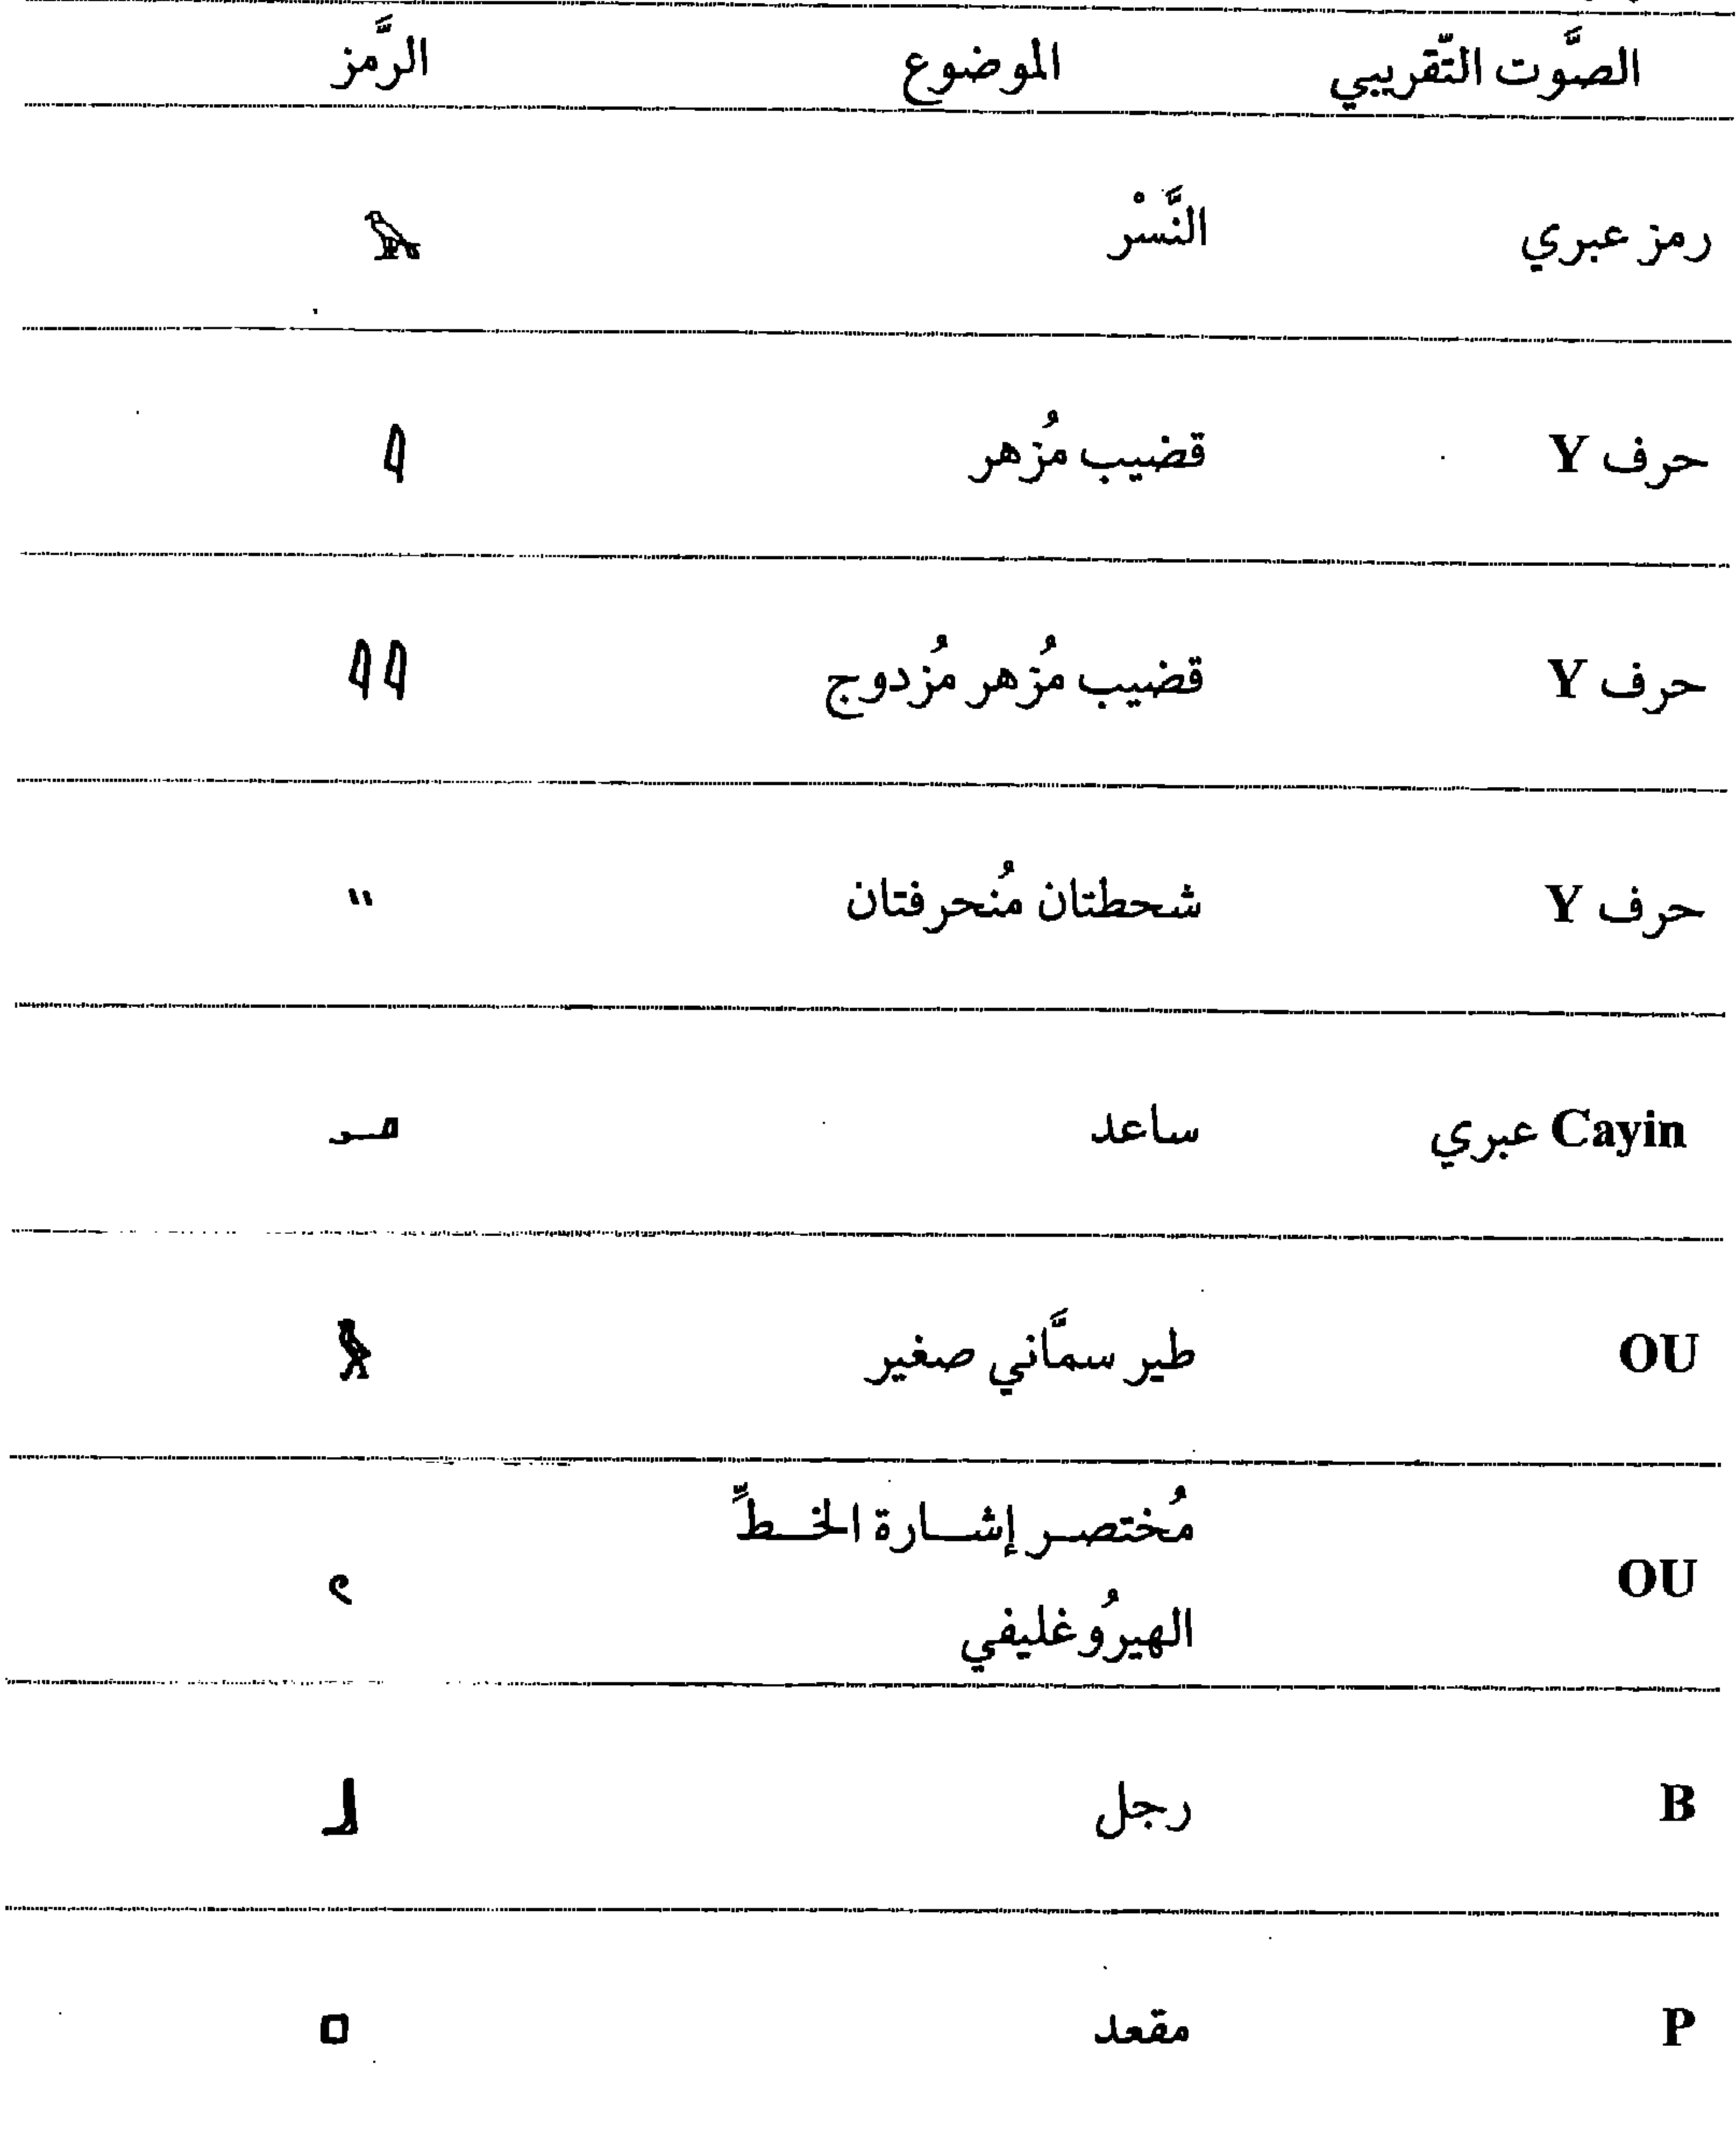 الصَّوت التَّقريبي الموضوع الرَّمز
رمز عبري النَّسْر 𓄿
حرف Y قضيب مُزهر 𓇋
حرف Y قضيب مُزهر مُزدوج 𓇋𓇋
حرف Y شحطتان مُنحرفتان 𓏭
Cayin عبري ساعد 𓂝
OU طير سمَّاني صغير 𓅱
OU مُختصر إشارة الخطِّ الهيرُوغليفي 𓏲
B رجل 𓃀
P مقعد 𓊪